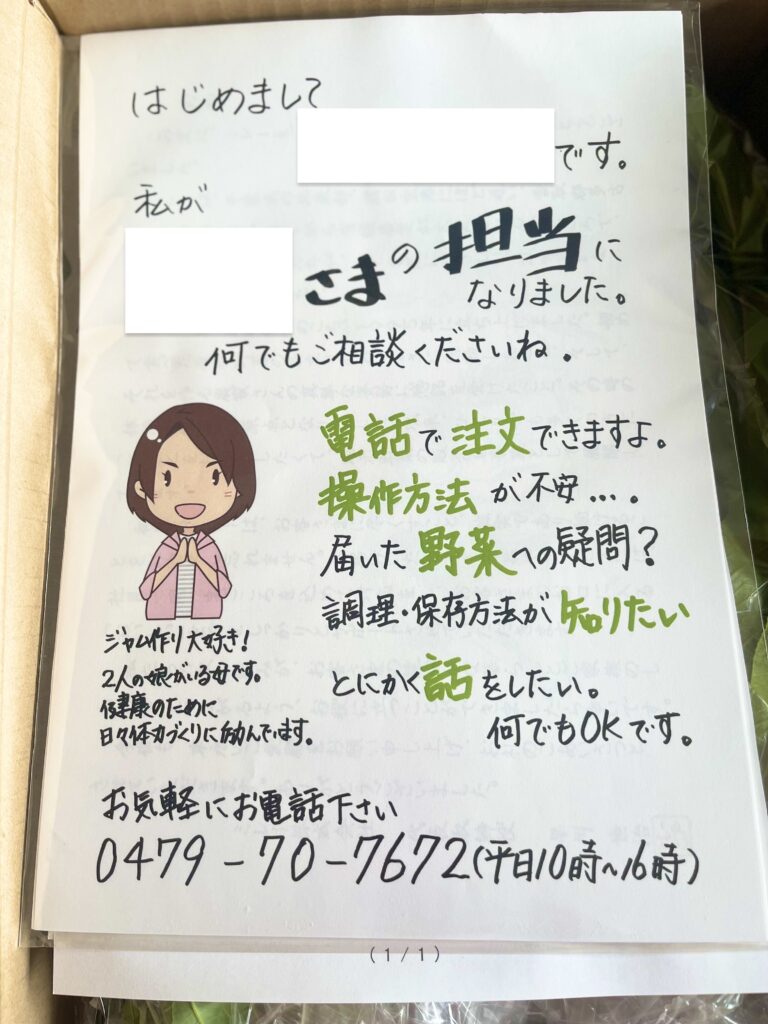 はじめまして
です。
私が
さまの担当に
なりました。
何でもご相談くださいね。
電話で注文できますよ。
操作方法が不安…。
届いた野菜への疑問？
調理・保存方法が知りたい
とにかく話をしたい。
何でもOKです。
ジャム作り大好き！
2人の娘がいる母です。
健康のために
日々体力づくりに励んでいます。
お気軽にお電話下さい
0479-70-7672(平日10時～16時)
(1/1)